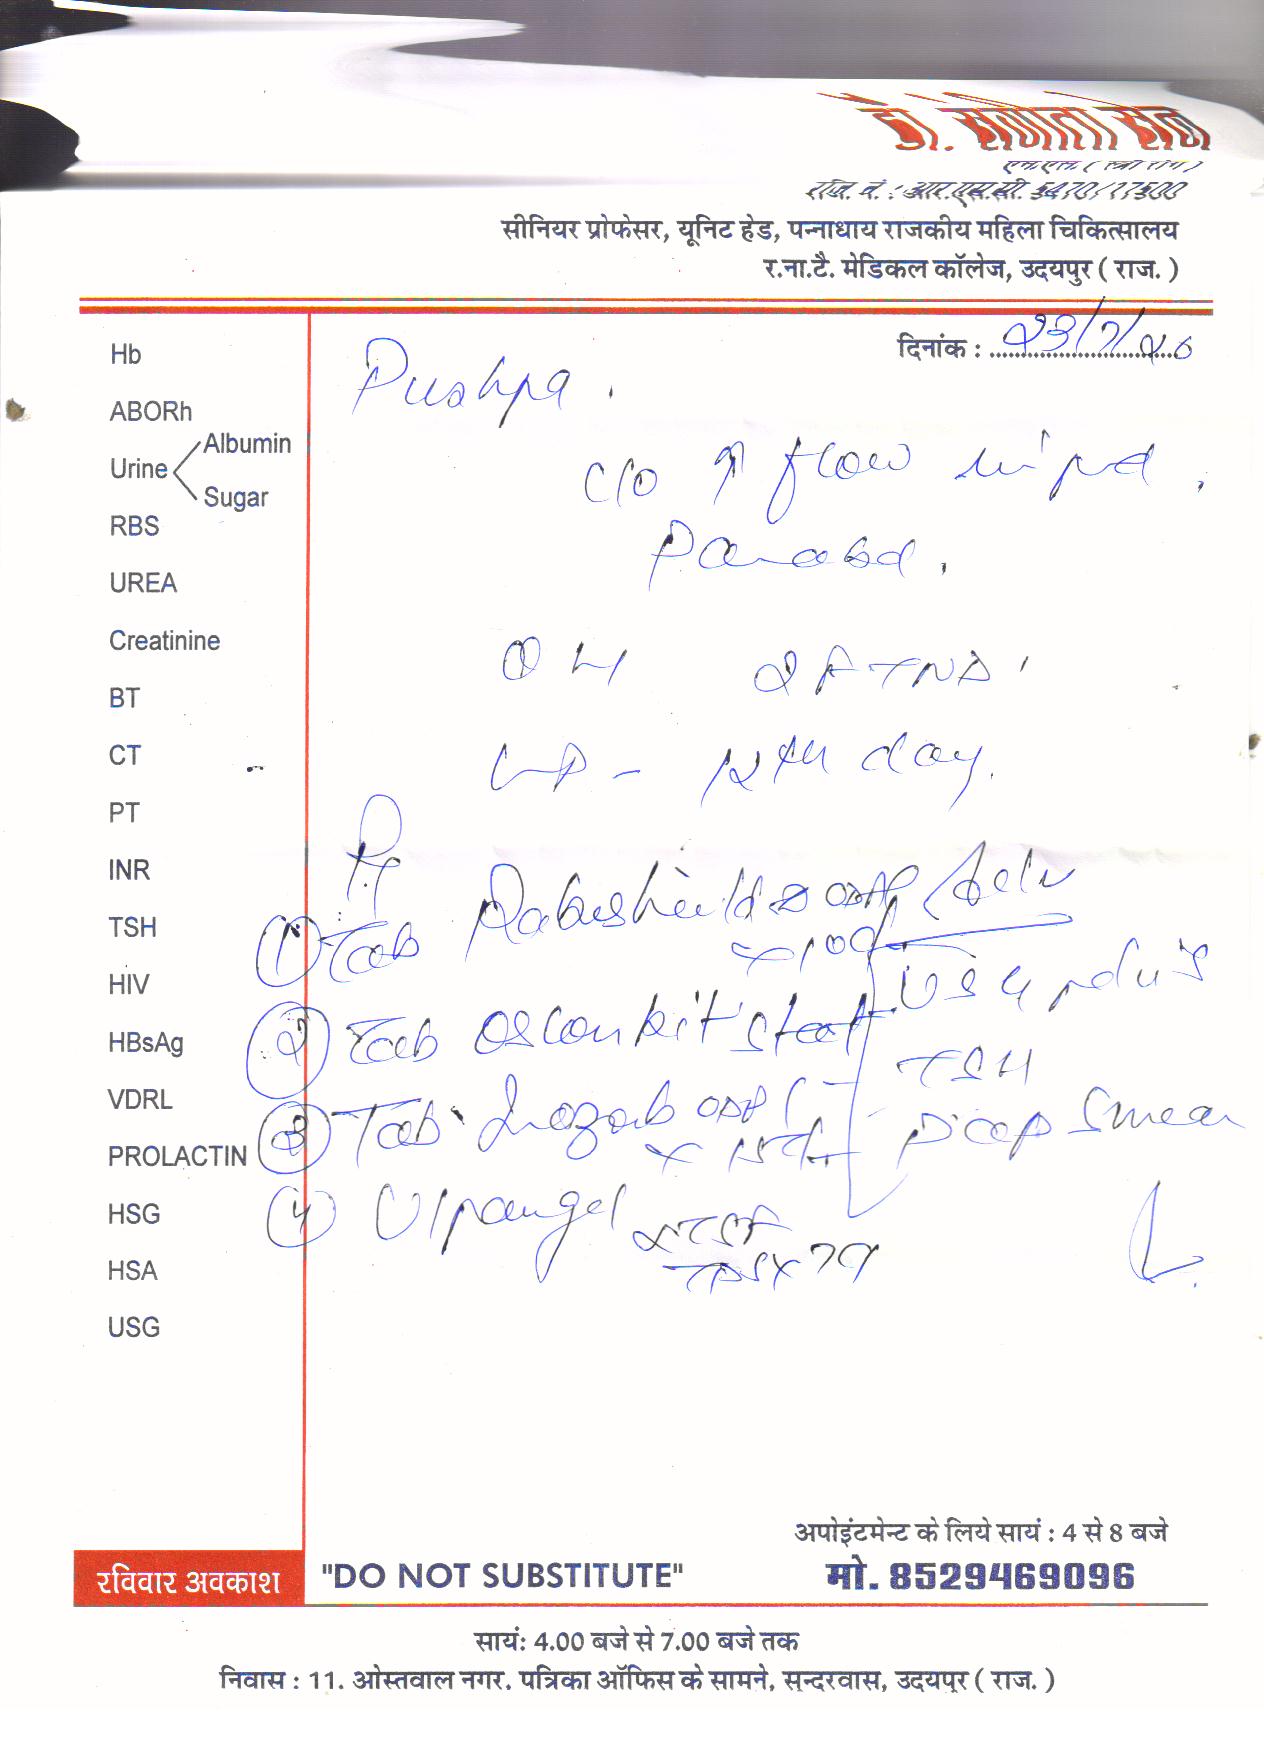 डॉ. संगीता सेन
एम.एस. ( स्त्री रोग )
रजि. नं. : आर.एस.सी. 5470/17500
सीनियर प्रोफेसर, यूनिट हेड, पन्नाधाय राजकीय महिला चिकित्सालय
र.ना.टै. मेडिकल कॉलेज, उदयपुर ( राज. )
दिनांक : 23/7/20
Hb
Pushpa .
ABORh
Urine Albumin
Sugar
c/o ↑ flow
RBS
Pain abd.
UREA
Creatinine
OH 2 FTND
BT
CT
LMP - 12th day.
PT
INR
TSH
1 Tab Rabishield
x 10d
HIV
USG pelvis
HBsAg
2 Tab kit stat
TSH
VDRL
3 Tab OD
x 15d
Pap Smear
PROLACTIN
HSG
4
HSA
USG
अपोइंटमेन्ट के लिये सायं : 4 से 8 बजे
रविवार अवकाश "DO NOT SUBSTITUTE" मो. 8529469096
सायं: 4.00 बजे से 7.00 बजे तक
निवास : 11. ओस्तवाल नगर. पत्रिका ऑफिस के सामने, सुन्दरवास, उदयपुर ( राज. )